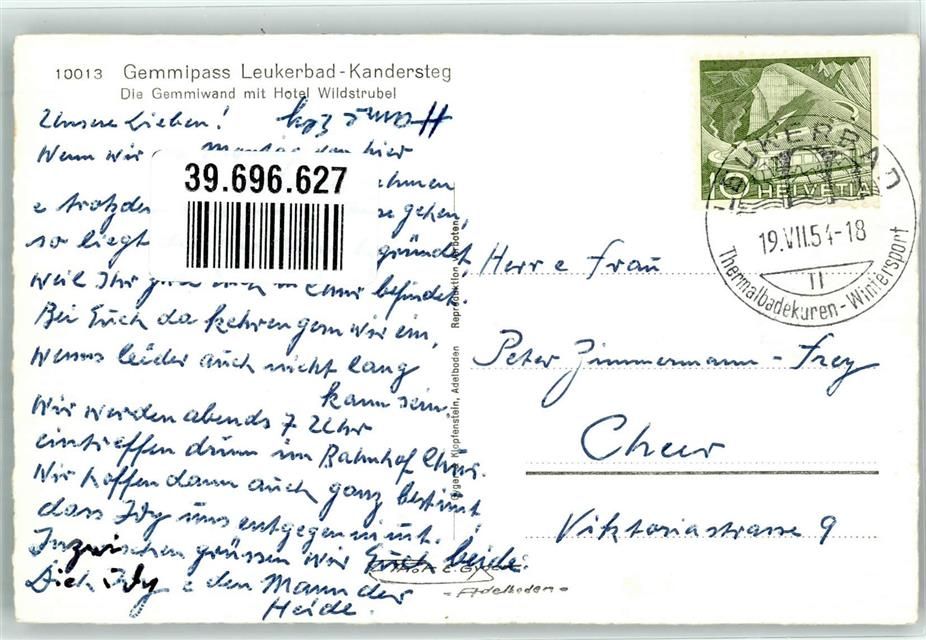 10013 Gemmipass Leukerbad-Kandersteg
Die Gemmiwand mit Hotel Wildstrubel
Unsere Lieben!
Wenn wir von hier
39.696.627
e trotzdem gehen,
so liegt
weil Ihr in Chur befindet.
Bei Euch da kehren gern wir ein,
wenns leider auch nicht lang
kann sein.
Wir werden abends 7 Uhr
eintreffen drum im Bahnhof Chur.
Wir hoffen dann auch ganz bestimmt
dass Idy uns entgegennimmt.
Inzwischen grüssen wir Euch beide:
Dich Idy e den Mann der
Heide.
- Adelboden -
Klopfenstein, Adelboden Reproduktion verboten
10 HELVETIA
LEUKERBAD
19.VII.54-18
Thermalbadekuren-Wintersport
Herr e Frau
Peter Zimmermann-Frey
Chur
Viktoriastrasse 9